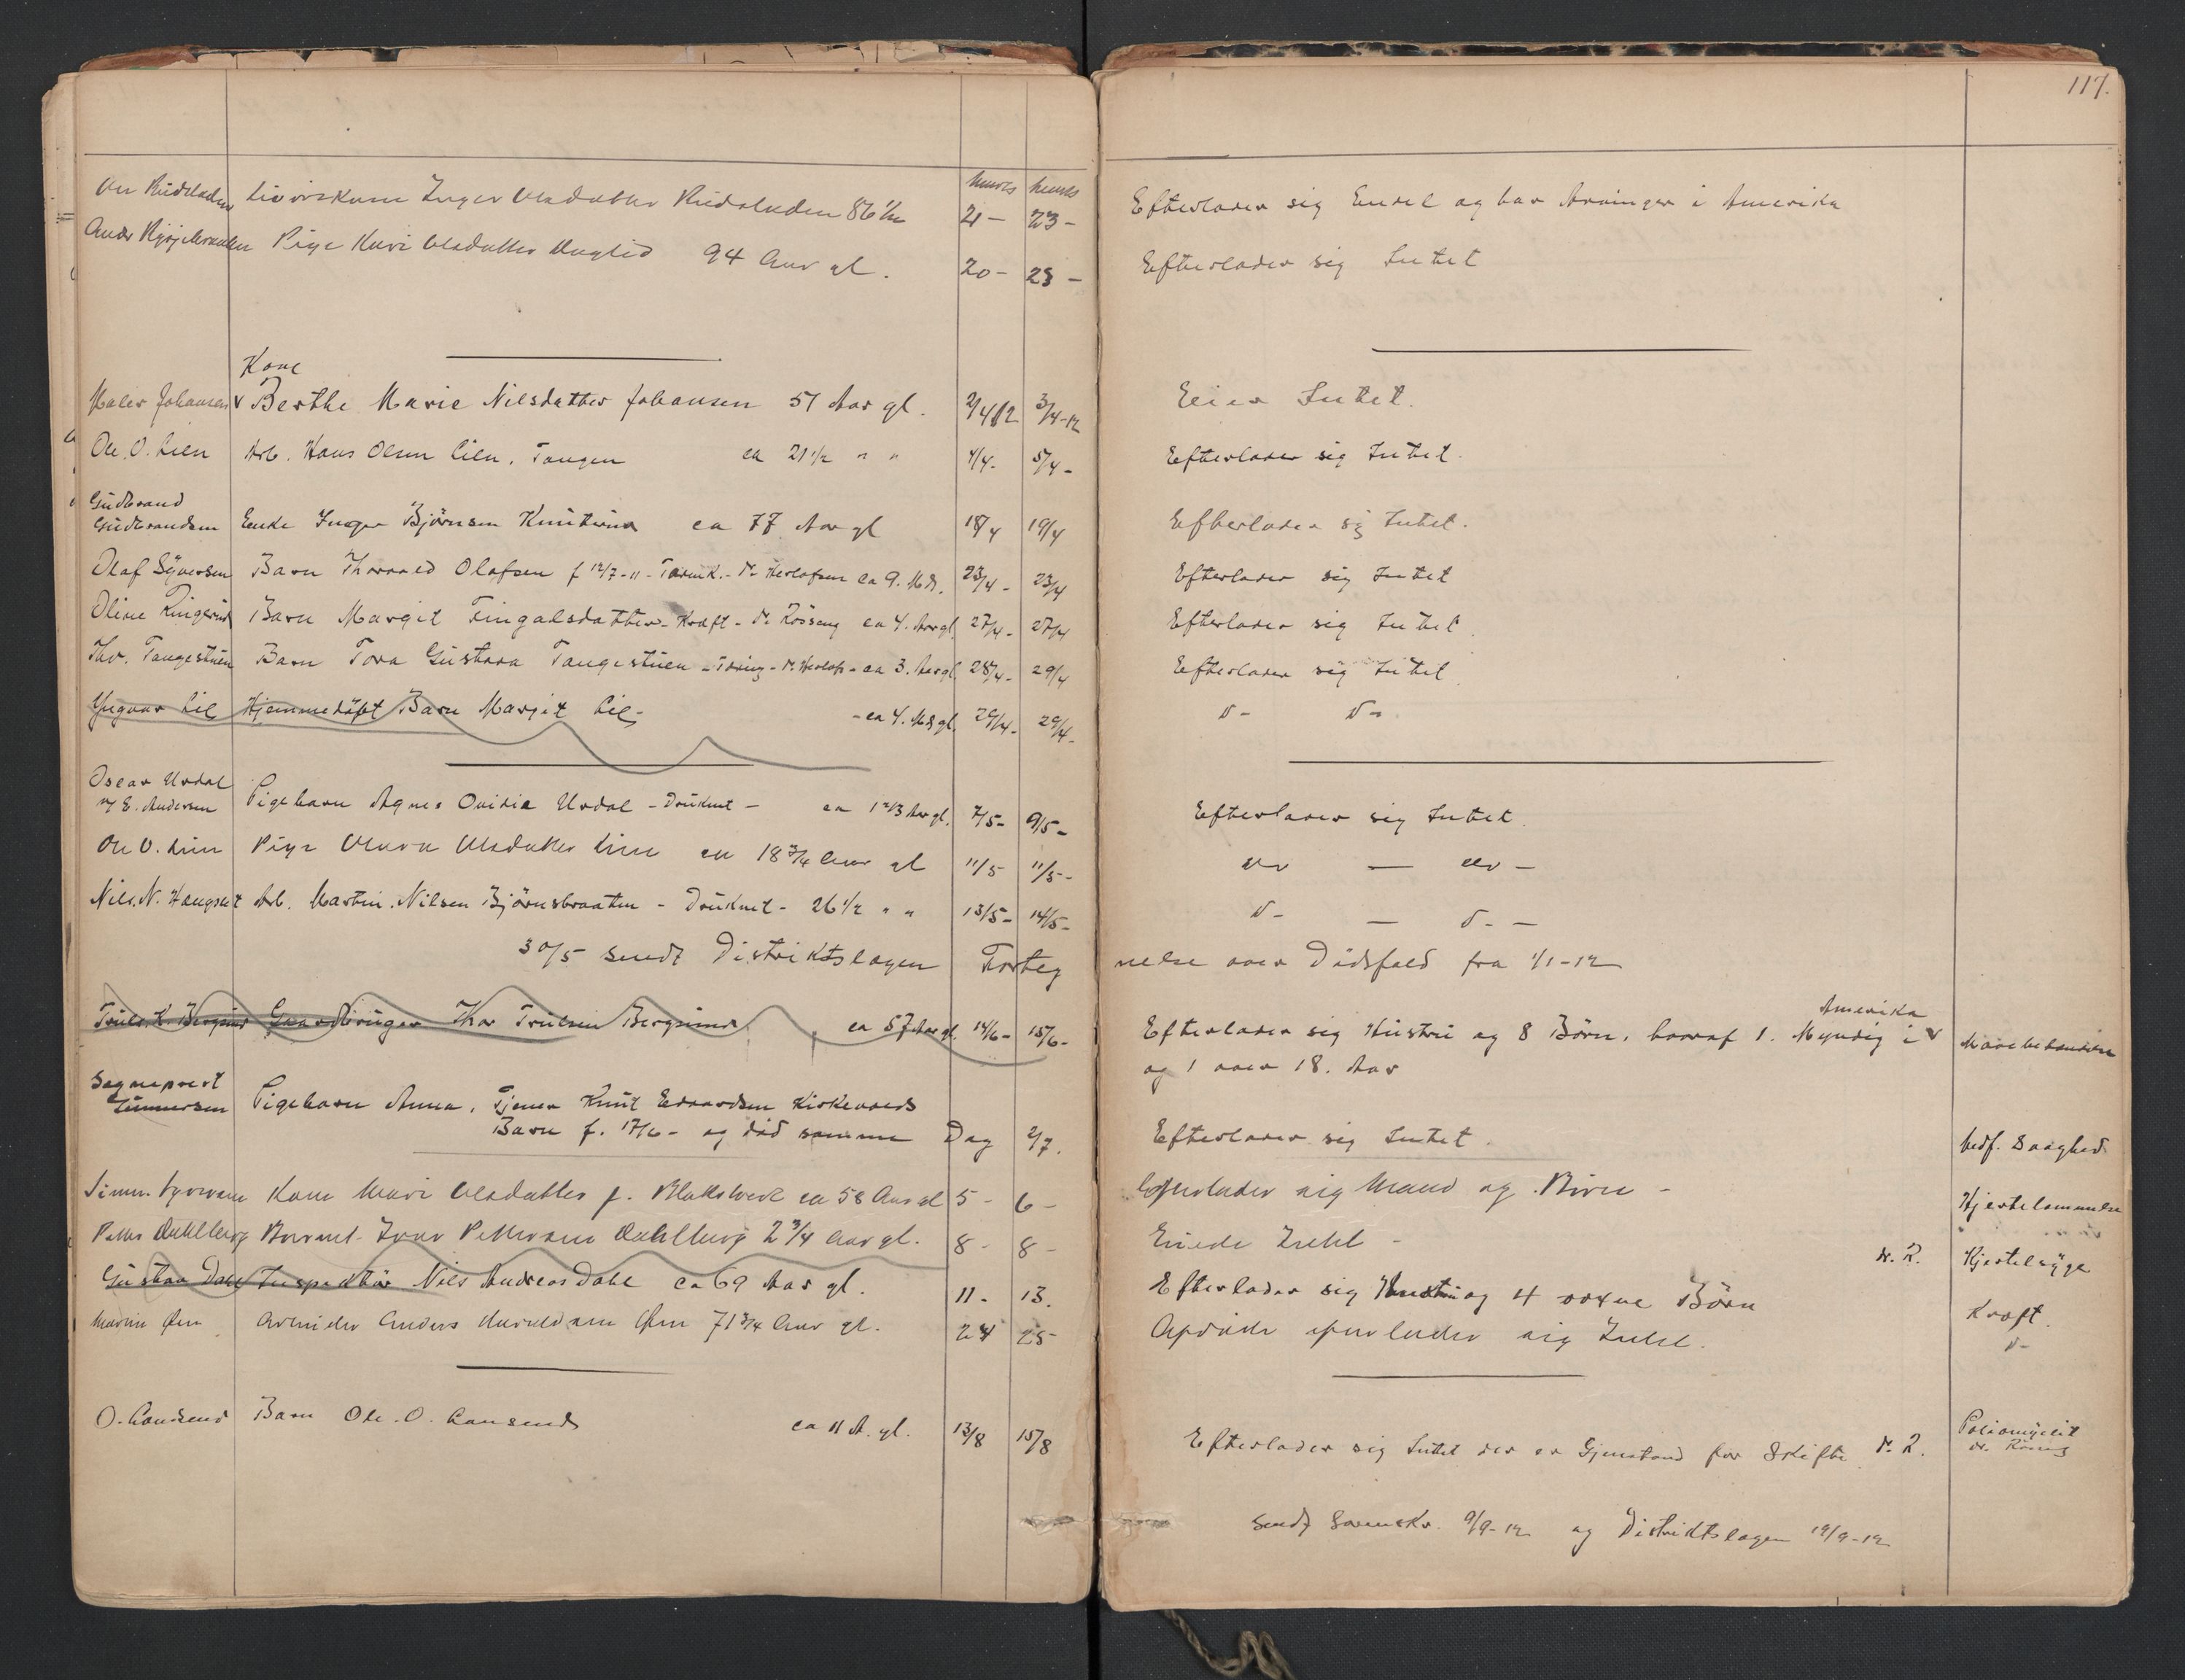 117.
Marts Marts
Livørskone Inger Olsdatter Rudsladen 86 1/2 21 - 23 - Efterlader sig Endel og har Arvinger i Amerika
Pige Kari Olsdatter Haglid 94 Aar gl. 20 - 23 - Efterlader sig Intet
Kone
Maler Johansen v Berthe Marie Nilsdatter Johansen 51 Aar gl. 2/4 12 3/4-12 Eier Intet.
Ole O. Lien Arb. Hans Olsen Lien, Tangen ca 21 1/2 " " 4/4- 5/4- Efterlader sig Intet.
Gudbrand
Gudbrandsen Enke Inger Björnsen ca 77 Aar gl 18/4 19/4 Efterlader sig Intet.
Olaf Syversen Barn Thorvald Olafsen f 12/7-11- - Dr Herlofsen ca 9. Md. 23/4- 23/4 Efterlader sig Intet
Oline Ringerud Barn Margit Fingalsdatter - Kraft - Dr Rösseng ca 4. Aar gl. 27/4- 27/4 Efterlader sig Intet.
Thv. Tangestuen Barn Tora Gustava Tangestuen - Tæring - Dr. Herlofs - ca 3. Aar gl. 28/4- 29/4 Efterlader sig Intet.
Yngvar Lie Hjemmedöbt Barn Margit Lie - - ca 4. Md gl. 29/4- 29/4- D- D-
Oscar Urdal
v/ E. Andersen Pigebarn Agnes Ovidia Urdal - Druknet - ca 1 2/3 Aar gl. 7/5- 9/5- Efterlader sig Intet.
Ole O. Lien Pige Olava Olsdatter Lien ca 18 3/4 Aar gl 11/5 11/5- do — do -
Nils. N. Haugset Arb. Martin. Nilsen Björnsbraaten - Druknet - 26 1/2 " " 13/5- 14/5- D- — D- —
30/5 sendt Distriktslægen Forteg nelse over Dödsfald fra 1/1-12
Amerika
Truls. K. Bergsund Gaardbruger Thor Trulsen Bergsund ca 57 Aar gl. 14/6- 15/6- Efterlader sig Hustru og 8 Börn, hvoraf 1. Myndig i v
og 1 over 18. Aar
Sogneprest
Gunnersen Pigebarn Anna, Tjener Knut Edvardsen Kirkevolds
Barn f. 17/6- og död samme Dag 2/7. Efterlader sig Intet. Medf. Svaghed
Simen Kone Mari Olsdatter f. ca 58 Aar gl 5 - 6 - Efterlader sig Mand og Börn - Hjertelammelse
Petter Dahlberg Barnet Ivar Pettersen Dahlberg 2 3/4 Aar gl. 8 - 8 - Eiede Intet - " "
Gustav Dahl Inspektör Nils Andreas Dahl ca 69 Aar gl. 11 - 13. Efterlader sig Hustru og 4 voxne Börn dr. R. Hjertesyge
Martin Øen Arbeider Anders Haraldsen Øen 71 3/4 Aar gl. 24 25 Afdöde efterlader sig Intet. Kraft.
D-
O. Landsend Barn Ole. O. Landsend ca 11 A. gl. 13/8 15/8 Efterlader sig Intet der er Gjenstand for Skifte dr. R. Poliomyelit
sendt Sorenskr. 9/9-12 og Distriktslægen 12/9-12